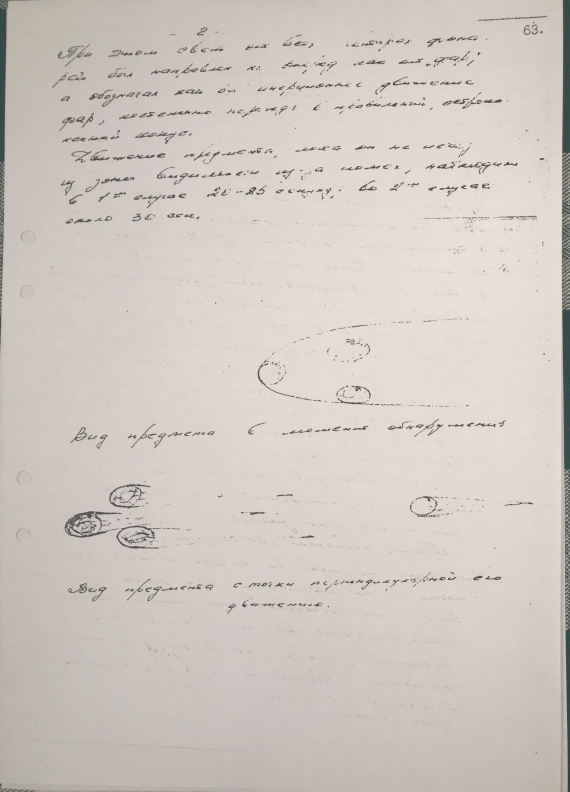 - 2.
63.
При этом свет от всех четырех фона-
рей был направлен не вперед как от "фар",
а обозначал как бы инерционное движение
фар, постепенно переходя в правильный, остроко-
нечный конус.
Движение предмета, пока он не исчез
из зоны видимости из-за помех, наблюдали
в 1ом случае 20-25 секунд; во 2ом случае
около 30 сек.
Вид предмета в момент обнаружения
Вид предмета с точки перпендикулярной его
движению.